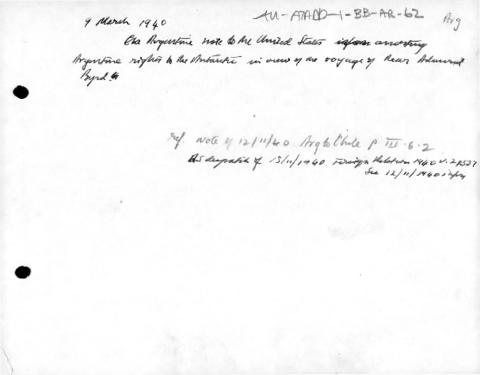 9 March 1940
AU-ATADD-1-BB-AR-62
Arg
Argentine note to the United States asserting
Argentine rights to the Antarctic in view of the voyage of Rear Admiral
Byrd.
Ref note of 12/11/40 Arg to Chile p III-6-2
US despatch of 13/11/1940 Foreign Relations 1940 v.2 p337
See 12/11/1940